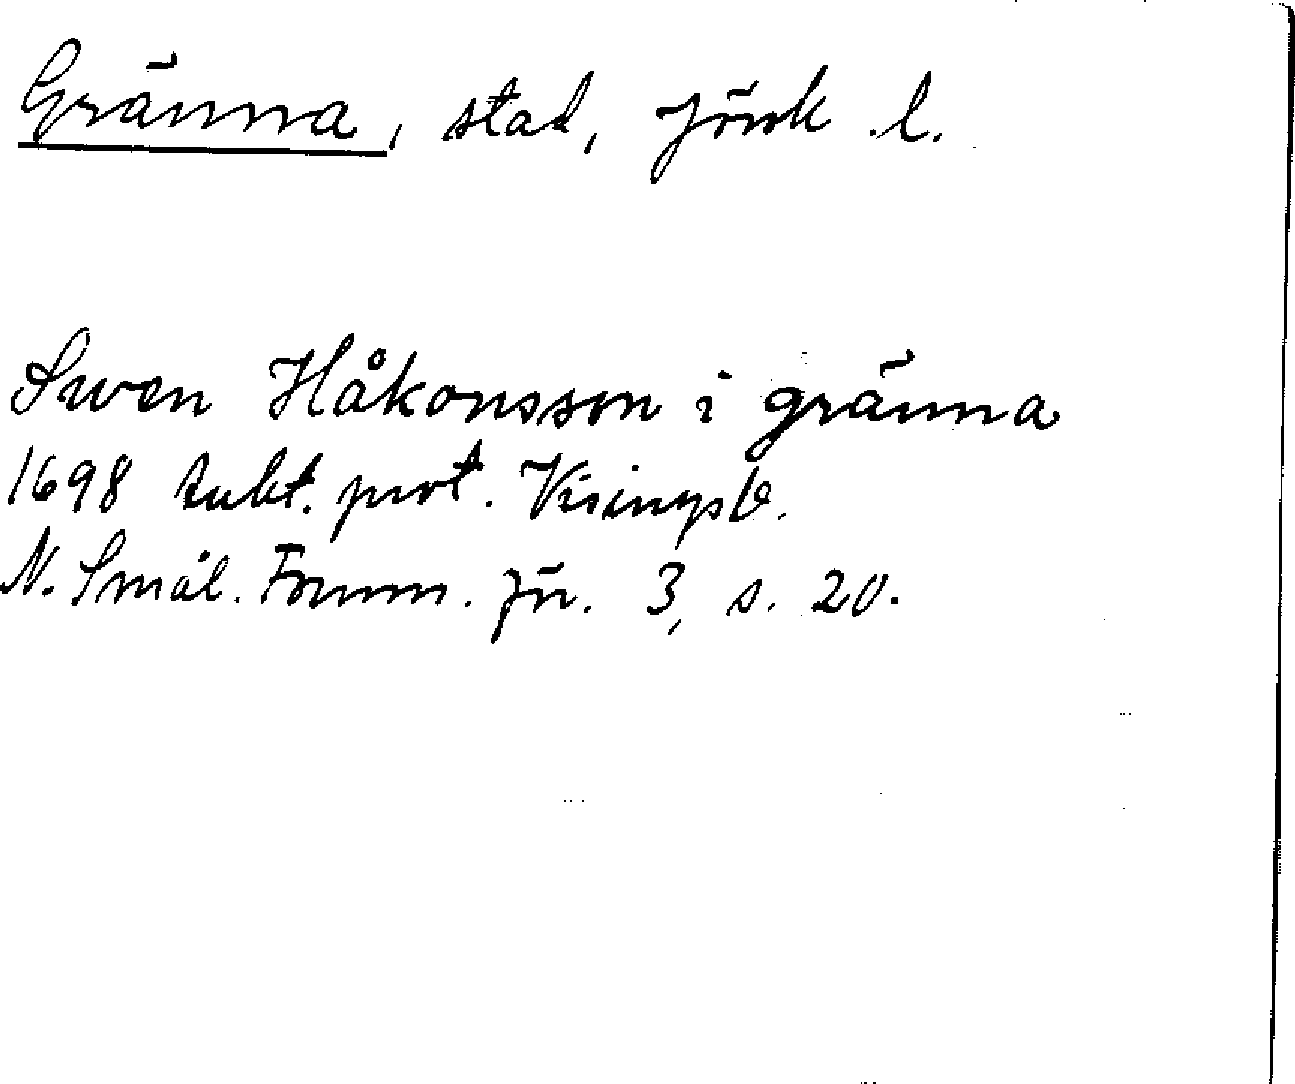 Gränna, stad, Jönk. l.
Swen Håkonsson i gränna
1698 tukt. prot. Visingsb.
N. Smål. Fornm. fın. 3, s. 20.